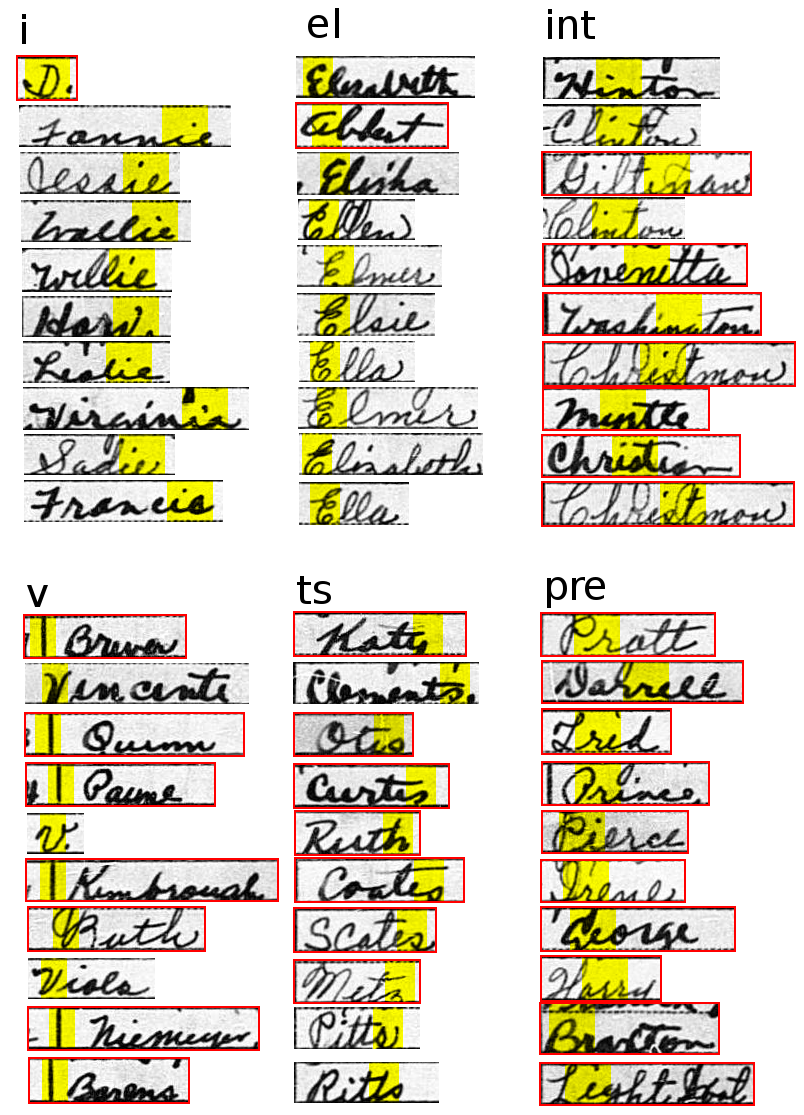 i
D.
Fannie
Jessie
Wallie
Willie
Harv.
Leslie
Virginia
Sadie
Francis
el
Elizabeth
Albert
Elisha
Ellen
Elmer
Elsie
Ella
Elmer
Elizabeth
Ella
int
Hinton
Clinton
Giltinan
Clinton
Jovenetta
Washington
Christmou
Myrtle
Christian
Christmou
v
Brewer
Vincente
Quinn
Payne
V.
Kimbrough
Ruth
Viola
Niemeyer
Barens
ts
Katy
Clements.
Otis
Curtis
Ruth
Coates
Scates
Metz
Pitts
Pitts
pre
Pratt
Darrell
Fred
Prince
Pierce
Irene
George
Harry
Braxton
Lightfoot